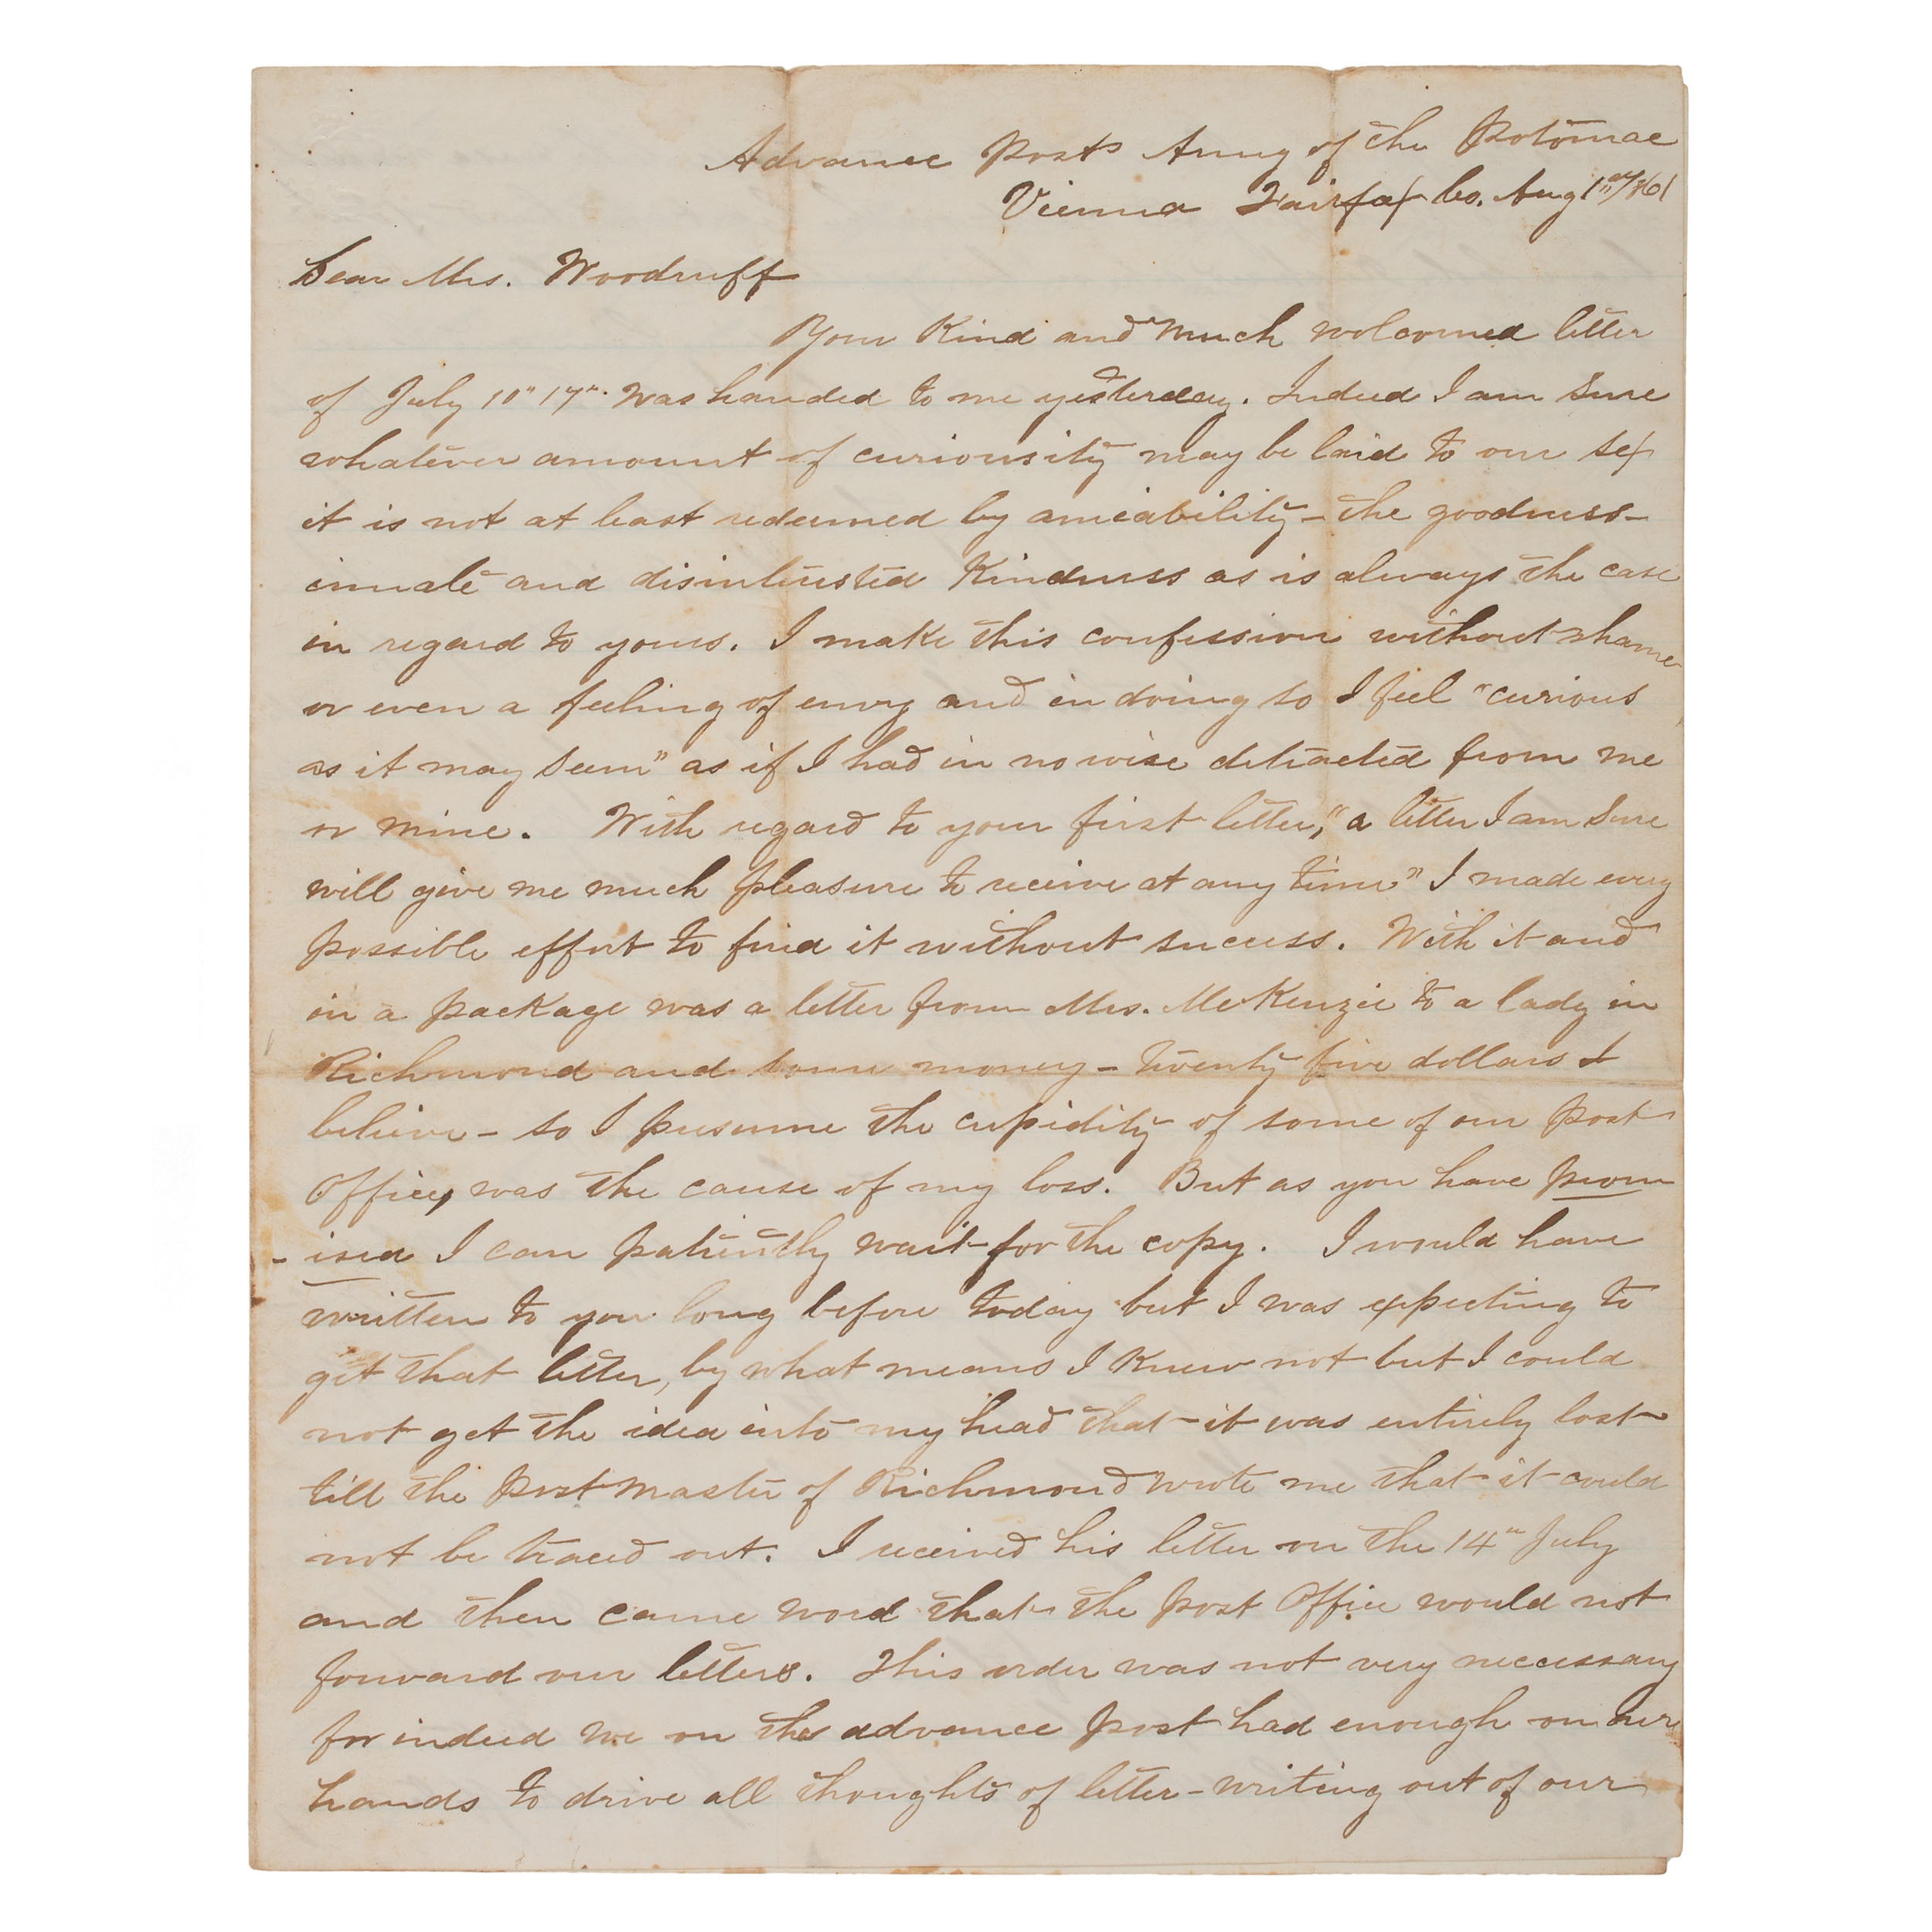 Advance Posts Army of the Potomac
Vienna Fairfax Co. Aug 1st/861
Dear Mrs. Woodruff
Your Kind and much welcomed letter
of July 10" 17th. was handed to me yesterday. Indeed I am sure
whatever amount of curiousity may be laid to our sex
it is not at least redeemed by amiability - the goodness -
innate and disinterested Kindness as is always the case
in regard to yours. I make this confession without shame
or even a feeling of envy and in doing so I feel "curious
as it may seem" as if I had in no wise detracted from me
or mine. With regard to your first letter, "a letter I am sure
will give me much pleasure to receive at any time" I made every
possible effort to find it without success. With it and
in a package was a letter from Mrs. McKenzie to a lady in
Richmond and some money - twenty five dollars I
believe - so I presume the cupidity of some of our Post
Offices, was the cause of my loss. But as you have prom
- ised I can patiently wait for the copy. I would have
written to you long before today but I was expecting to
get that letter, by what means I knew not but I could
not get the idea into my head that it was entirely lost
till the Post Master of Richmond wrote me that it could
not be traced out. I received his letter on the 14th July
and then came word that the Post Office would not
forward our letters. This order was not very neccessary
for indeed we on the advance post had enough on our
hands to drive all thoughts of letter-writing out of our